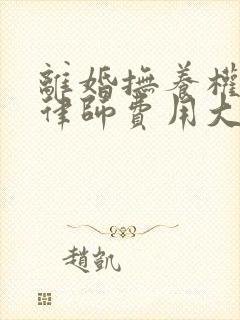 離婚撫養權
律師費用大
趙凱